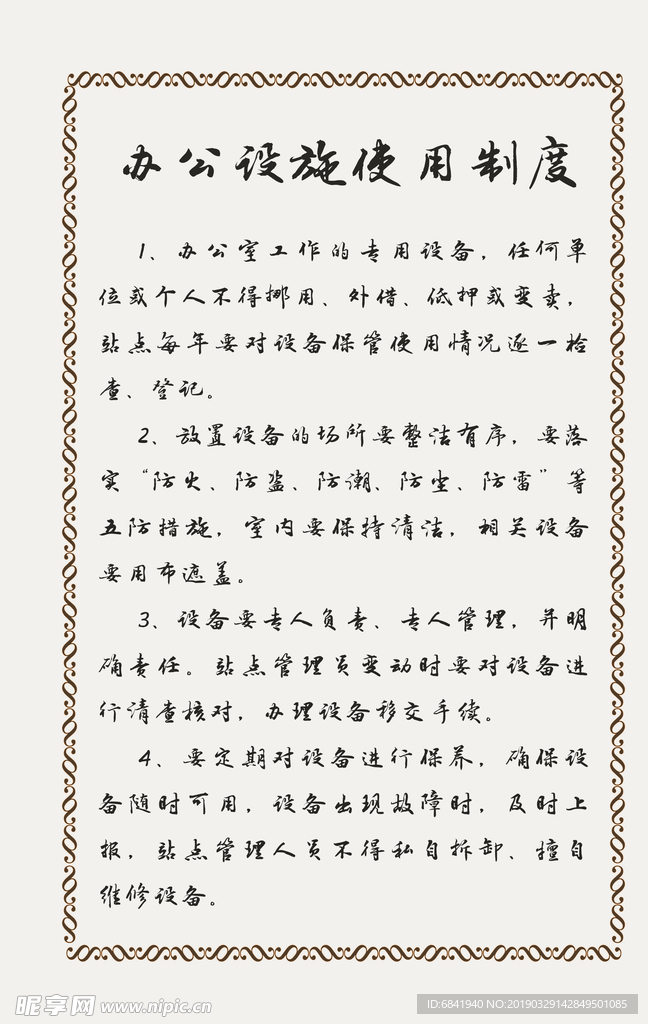 办公设施使用制度
1、办公室工作的专用设备，任何单
位或个人不得挪用、外借、低押或变卖，
站点每年要对设备保管使用情况逐一检
查、登记。
2、放置设备的场所要整洁有序，要落
实“防火、防盗、防潮、防尘、防雷”等
五防措施，室内要保持清洁，相关设备
要用布遮盖。
3、设备要专人负责、专人管理，并明
确责任。站点管理员变动时要对设备进
行清查核对，办理设备移交手续。
4、要定期对设备进行保养，确保设
备随时可用，设备出现故障时，及时上
报，站点管理人员不得私自拆卸、擅自
维修设备。
昵享网 www.nipic.cn
ID:6841940 NO:20190329142849501085